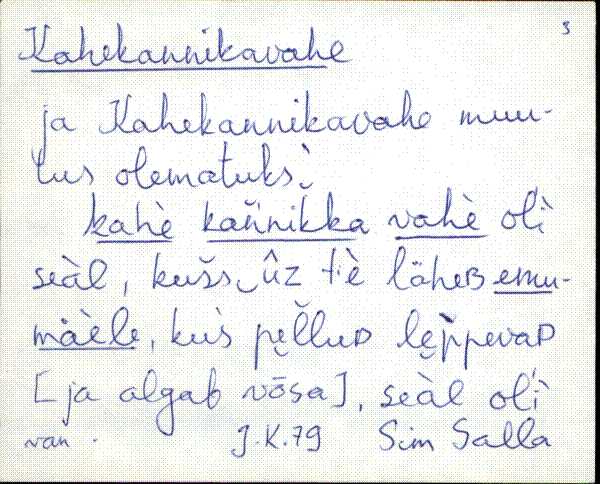 3
Kahekannikavahe
ja Kahekannikavahe muu-
tus olematuks.
kahè kan̆nikka vahè olì
seàl, kušs‿ûz tiè läheʙ emu-
mäèle, kus pĕllud leppevaᴅ
[ja algab võsa], seàl olì
van. J.K.79 Sim Salla